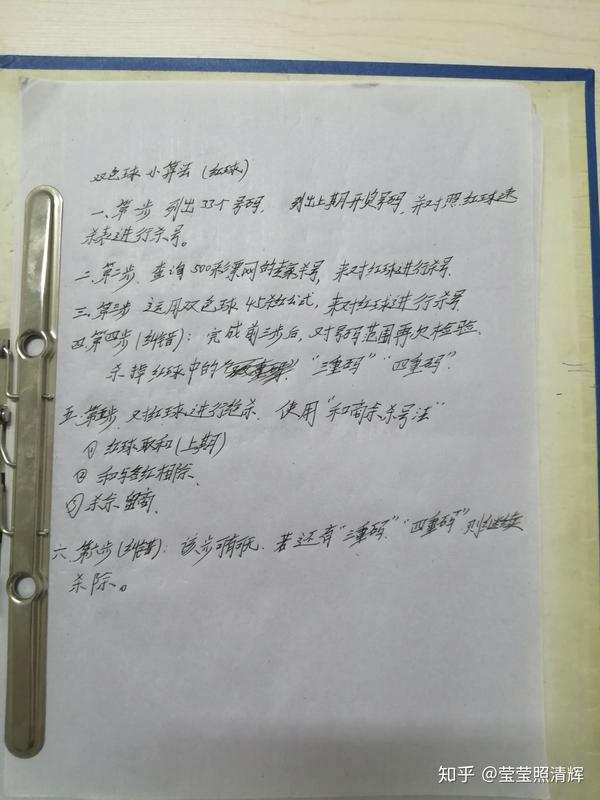 双色球小算法(红球)
一、第一步 列出33个号码. 列出上期开奖号码,并对照红球速
杀表进行杀号。
二、第二步. 查询500彩票网的专家杀号,来对红球进行杀号.
三、第三步 运用双色球45杀红公式,来对红球进行杀号.
四、第四步(纠错):完成前三步后,对号码范围再次检验.
杀掉红球中的 "三重码" "四重码".
五、第五步.对红球进行绝杀. 使用"和商余杀号法"
① 红球取和(上期)
② 和与各红相除.
③ 杀余留商.
六、第六步(纠错):该步可有可无. 若还有"三重码"、"四重码"则继续
杀除。
知乎 @莹莹照清辉